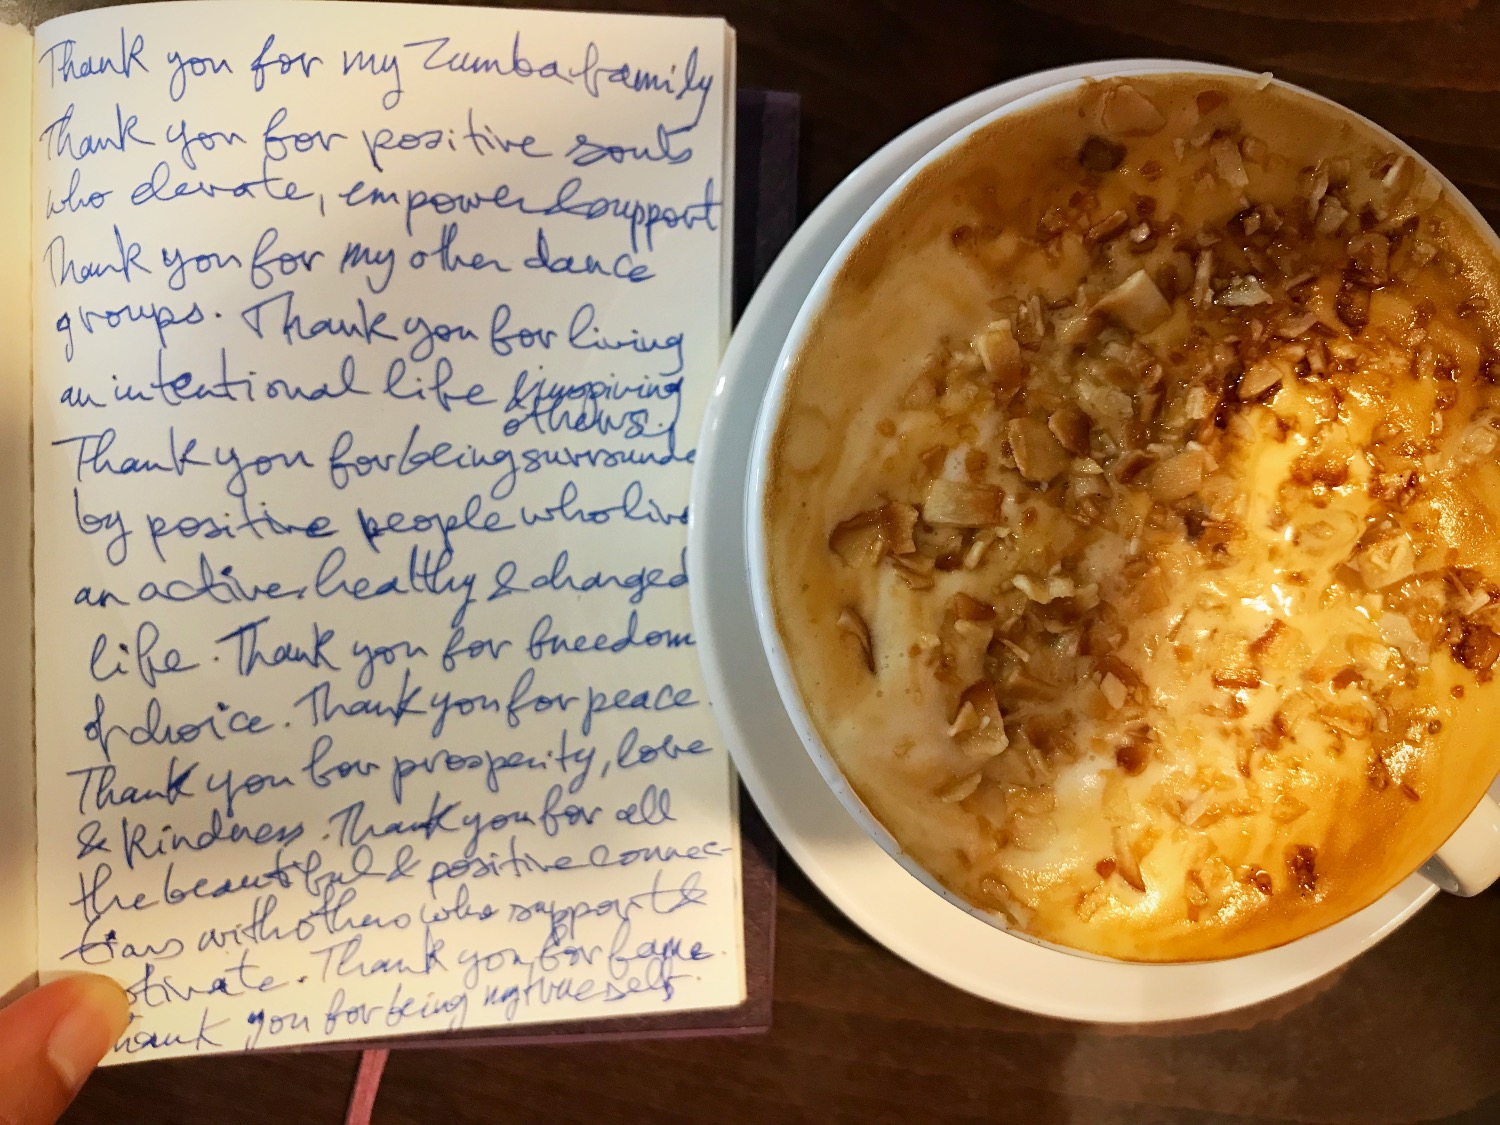 Thank you for my Zumba family
Thank you for positive souls
who elevate, empower & support
Thank you for my other dance
groups. Thank you for living
an intentional life & inspiring
others.
Thank you for being surrounde
by positive people who live
an active, healthy & changed
life. Thank you for freedom
of choice. Thank you for peace.
Thank you for prosperity, love
& kindness. Thank you for all
the beautiful & positive connec-
tions with others who support &
otivate. Thank you for fame.
hank you for being my true self.